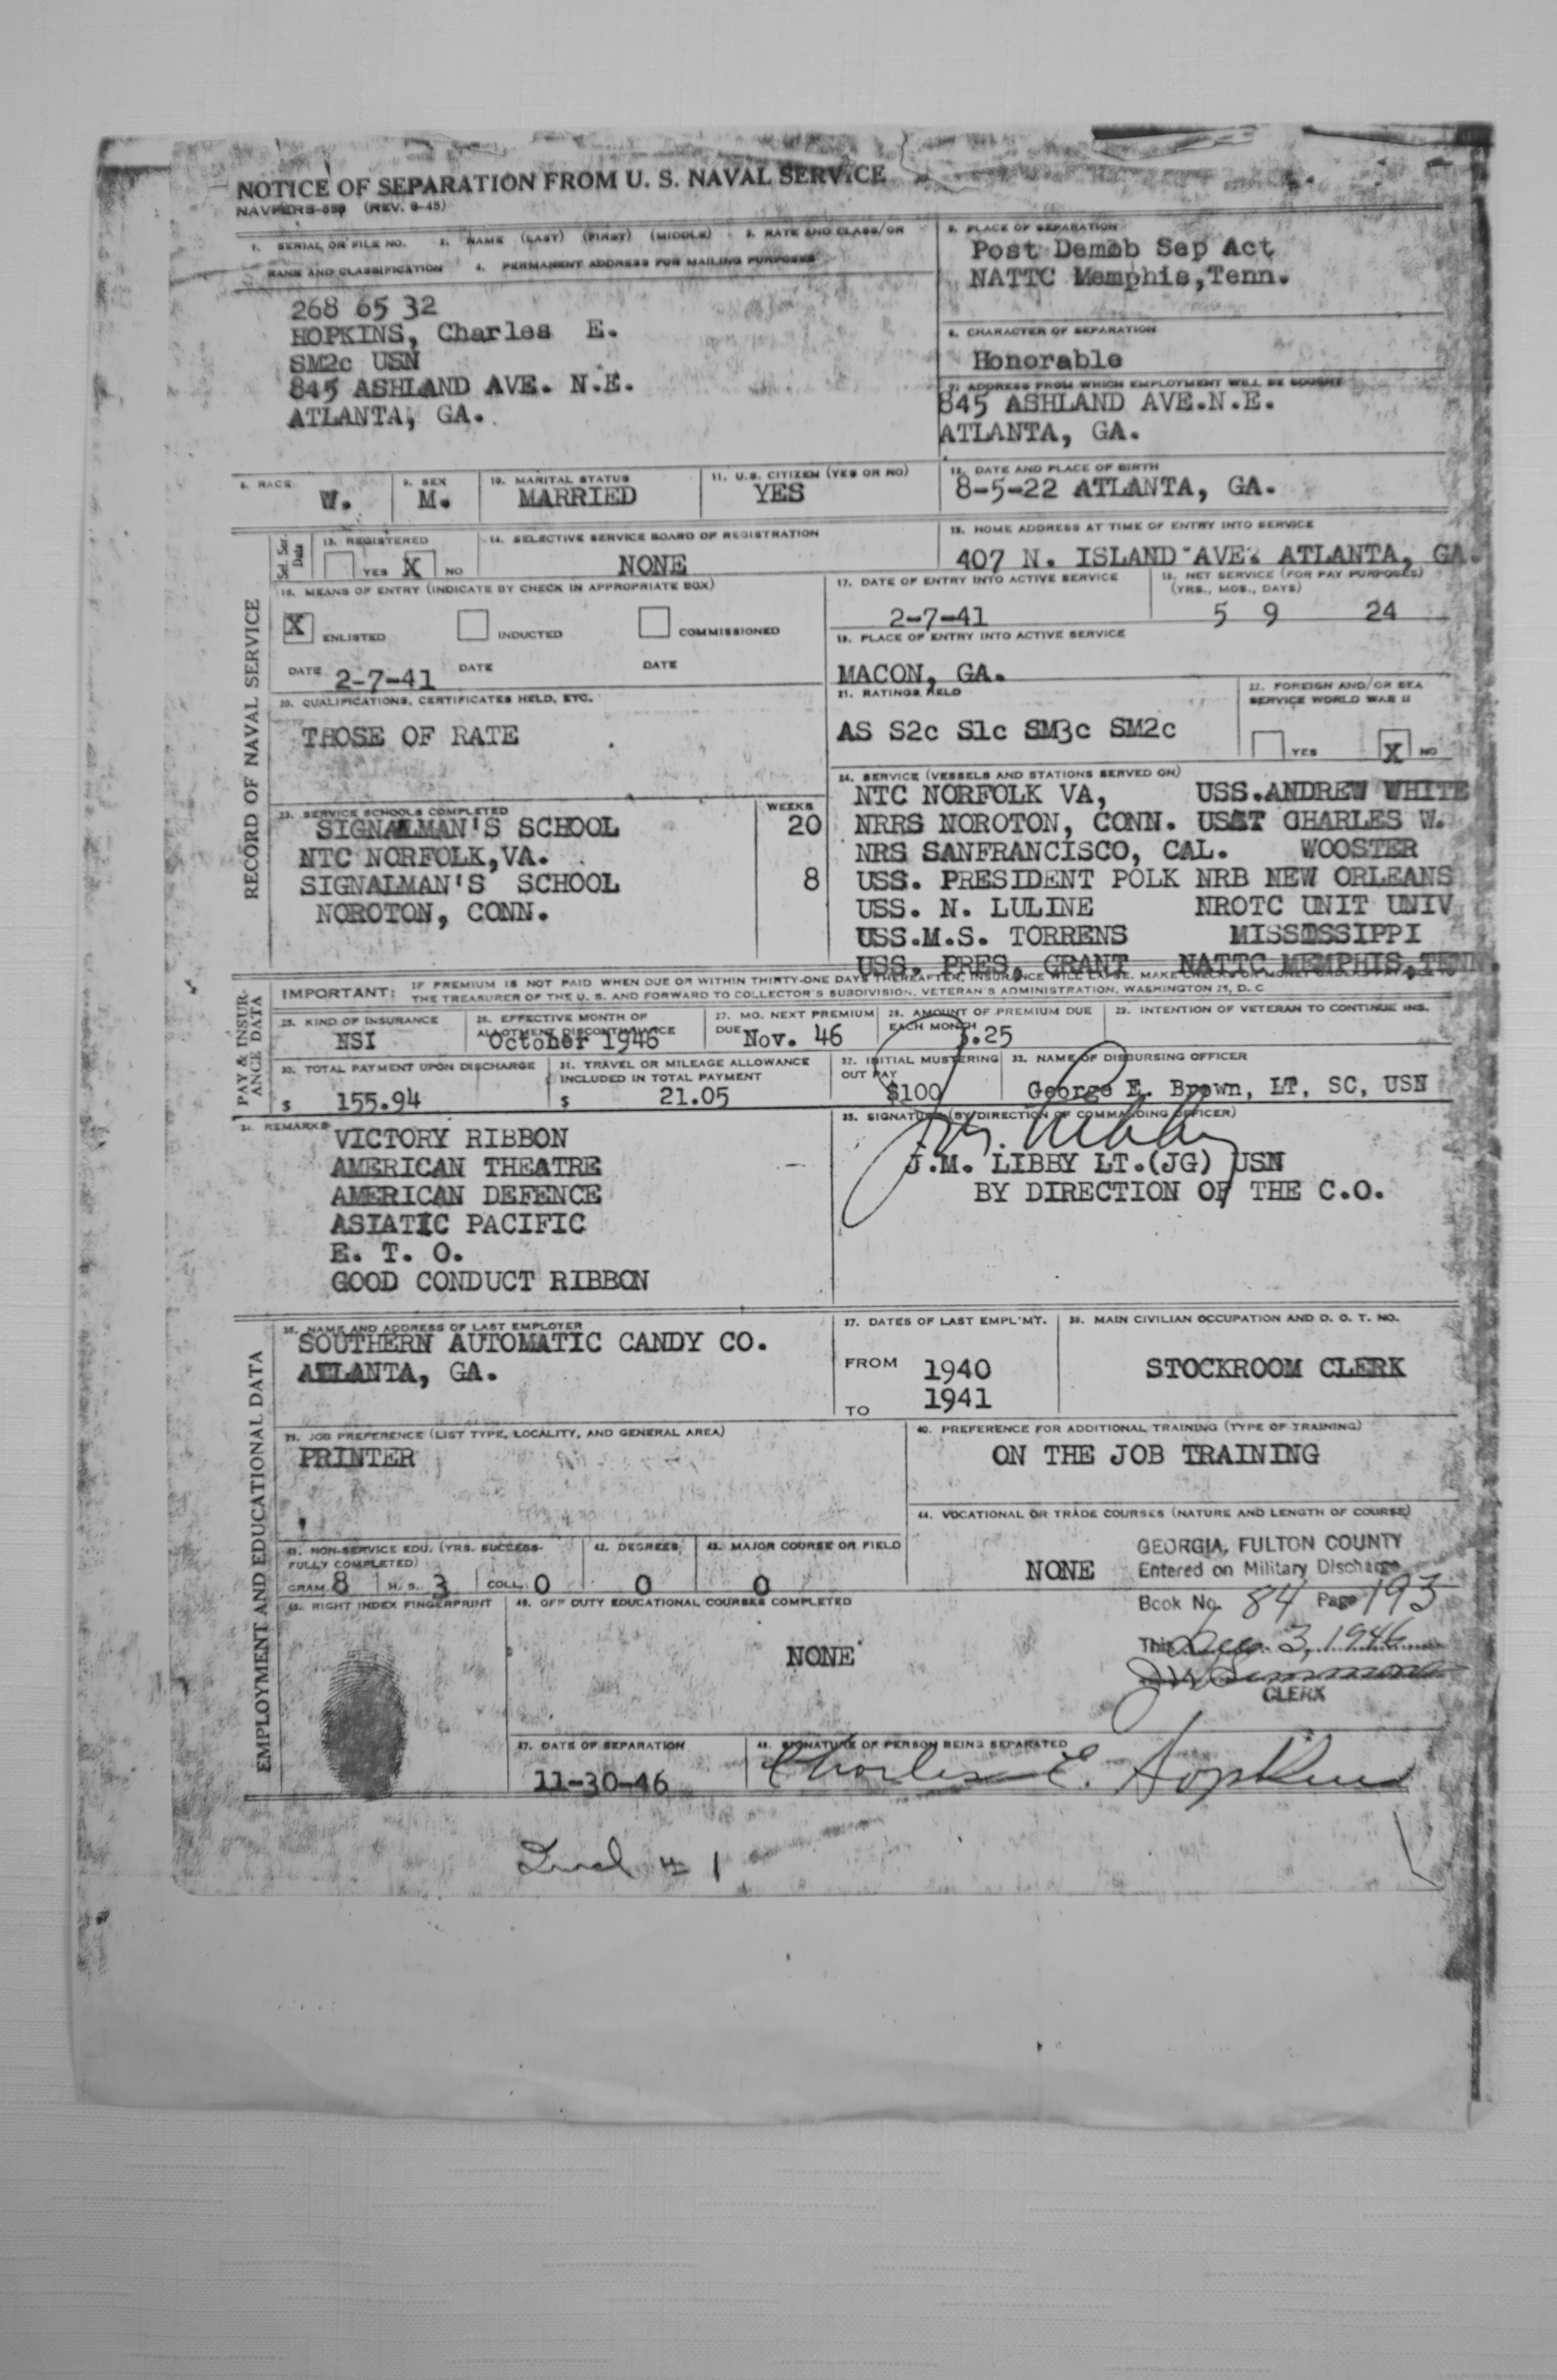 NOTICE OF SEPARATION FROM U. S. NAVAL SERVICE
NAVPERS-553 (REV. 8-45)
1. SERIAL OR FILE NO. 2. NAME (LAST) (FIRST) (MIDDLE) 3. RATE AND CLASS/OR
RANK AND CLASSIFICATION 4. PERMANENT ADDRESS FOR MAILING PURPOSES
268 65 32
HOPKINS, Charles E.
SM2c USN
845 ASHLAND AVE. N.E.
ATLANTA, GA.
5. PLACE OF SEPARATION
Post Demob Sep Act
NATTC Memphis,Tenn.
6. CHARACTER OF SEPARATION
Honorable
7. ADDRESS FROM WHICH EMPLOYMENT WILL BE SOUGHT
845 ASHLAND AVE.N.E.
ATLANTA, GA.
8. RACE
W.
9. SEX
M.
10. MARITAL STATUS
MARRIED
11. U.S. CITIZEN (YES OR NO)
YES
12. DATE AND PLACE OF BIRTH
8-5-22 ATLANTA, GA.
RECORD OF NAVAL SERVICE
Sel. Ser. Data
13. REGISTERED
YES X NO
14. SELECTIVE SERVICE BOARD OF REGISTRATION
NONE
15. HOME ADDRESS AT TIME OF ENTRY INTO SERVICE
407 N. ISLAND AVE. ATLANTA, GA.
16. MEANS OF ENTRY (INDICATE BY CHECK IN APPROPRIATE BOX)
X ENLISTED INDUCTED COMMISSIONED
DATE 2-7-41 DATE DATE
17. DATE OF ENTRY INTO ACTIVE SERVICE
2-7-41
18. NET SERVICE (FOR PAY PURPOSES)
(YRS., MOS., DAYS)
5 9 24
19. PLACE OF ENTRY INTO ACTIVE SERVICE
MACON, GA.
20. QUALIFICATIONS, CERTIFICATES HELD, ETC.
THOSE OF RATE
21. RATINGS HELD
AS S2c S1c SM3c SM2c
22. FOREIGN AND/OR SEA
SERVICE WORLD WAR II
YES X NO
23. SERVICE SCHOOLS COMPLETED WEEKS
SIGNALMAN'S SCHOOL 20
NTC NORFOLK,VA.
SIGNALMAN'S SCHOOL 8
NOROTON, CONN.
24. SERVICE (VESSELS AND STATIONS SERVED ON)
NTC NORFOLK VA, USS.ANDREW WHITE
NRRS NOROTON, CONN. USAT CHARLES W.
NRS SANFRANCISCO, CAL. WOOSTER
USS. PRESIDENT POLK NRB NEW ORLEANS
USS. N. LULINE NROTC UNIT UNIV
USS.M.S. TORRENS MISSISSIPPI
USS. PRES. GRANT NATTC MEMPHIS,TENN.
PAY & INSURANCE DATA
IMPORTANT: IF PREMIUM IS NOT PAID WHEN DUE OR WITHIN THIRTY-ONE DAYS THEREAFTER, INSURANCE WILL LAPSE. MAKE CHECKS OR MONEY
THE TREASURER OF THE U. S. AND FORWARD TO COLLECTOR'S SUBDIVISION, VETERAN'S ADMINISTRATION, WASHINGTON 25, D. C
25. KIND OF INSURANCE
NSI
26. EFFECTIVE MONTH OF
ALLOTMENT DISCONTINUANCE
October 1946
27. MO. NEXT PREMIUM
DUE Nov. 46
28. AMOUNT OF PREMIUM DUE
EACH MONTH
3.25
29. INTENTION OF VETERAN TO CONTINUE INS.
30. TOTAL PAYMENT UPON DISCHARGE
$ 155.94
31. TRAVEL OR MILEAGE ALLOWANCE
INCLUDED IN TOTAL PAYMENT
$ 21.05
32. INITIAL MUSTERING
OUT PAY
$100
33. NAME OF DISBURSING OFFICER
George E. Brown, LT, SC, USN
34. REMARKS
VICTORY RIBBON
AMERICAN THEATRE
AMERICAN DEFENCE
ASIATIC PACIFIC
E. T. O.
GOOD CONDUCT RIBBON
35. SIGNATURE (BY DIRECTION OF COMMANDING OFFICER)
J.M. Libby
J.M. LIBBY LT.(JG) USN
BY DIRECTION OF THE C.O.
EMPLOYMENT AND EDUCATIONAL DATA
36. NAME AND ADDRESS OF LAST EMPLOYER
SOUTHERN AUTOMATIC CANDY CO.
ATLANTA, GA.
37. DATES OF LAST EMPL'MT.
FROM 1940
1941
TO
38. MAIN CIVILIAN OCCUPATION AND D. O. T. NO.
STOCKROOM CLERK
39. JOB PREFERENCE (LIST TYPE, LOCALITY, AND GENERAL AREA)
PRINTER
40. PREFERENCE FOR ADDITIONAL TRAINING (TYPE OF TRAINING)
ON THE JOB TRAINING
41. NON-SERVICE EDU. (YRS. SUCCESS-
FULLY COMPLETED)
GRAM. 8 H. S. 3 COLL. 0
42. DEGREES
0
43. MAJOR COURSE OR FIELD
0
44. VOCATIONAL OR TRADE COURSES (NATURE AND LENGTH OF COURSE)
NONE
GEORGIA, FULTON COUNTY
Entered on Military Discharge
Book No. 84 Page 193
This Dec. 3, 1946
CLERK
45. RIGHT INDEX FINGERPRINT
46. OFF DUTY EDUCATIONAL COURSES COMPLETED
NONE
47. DATE OF SEPARATION
11-30-46
48. SIGNATURE OF PERSON BEING SEPARATED
Charles E. Hopkins
# 1